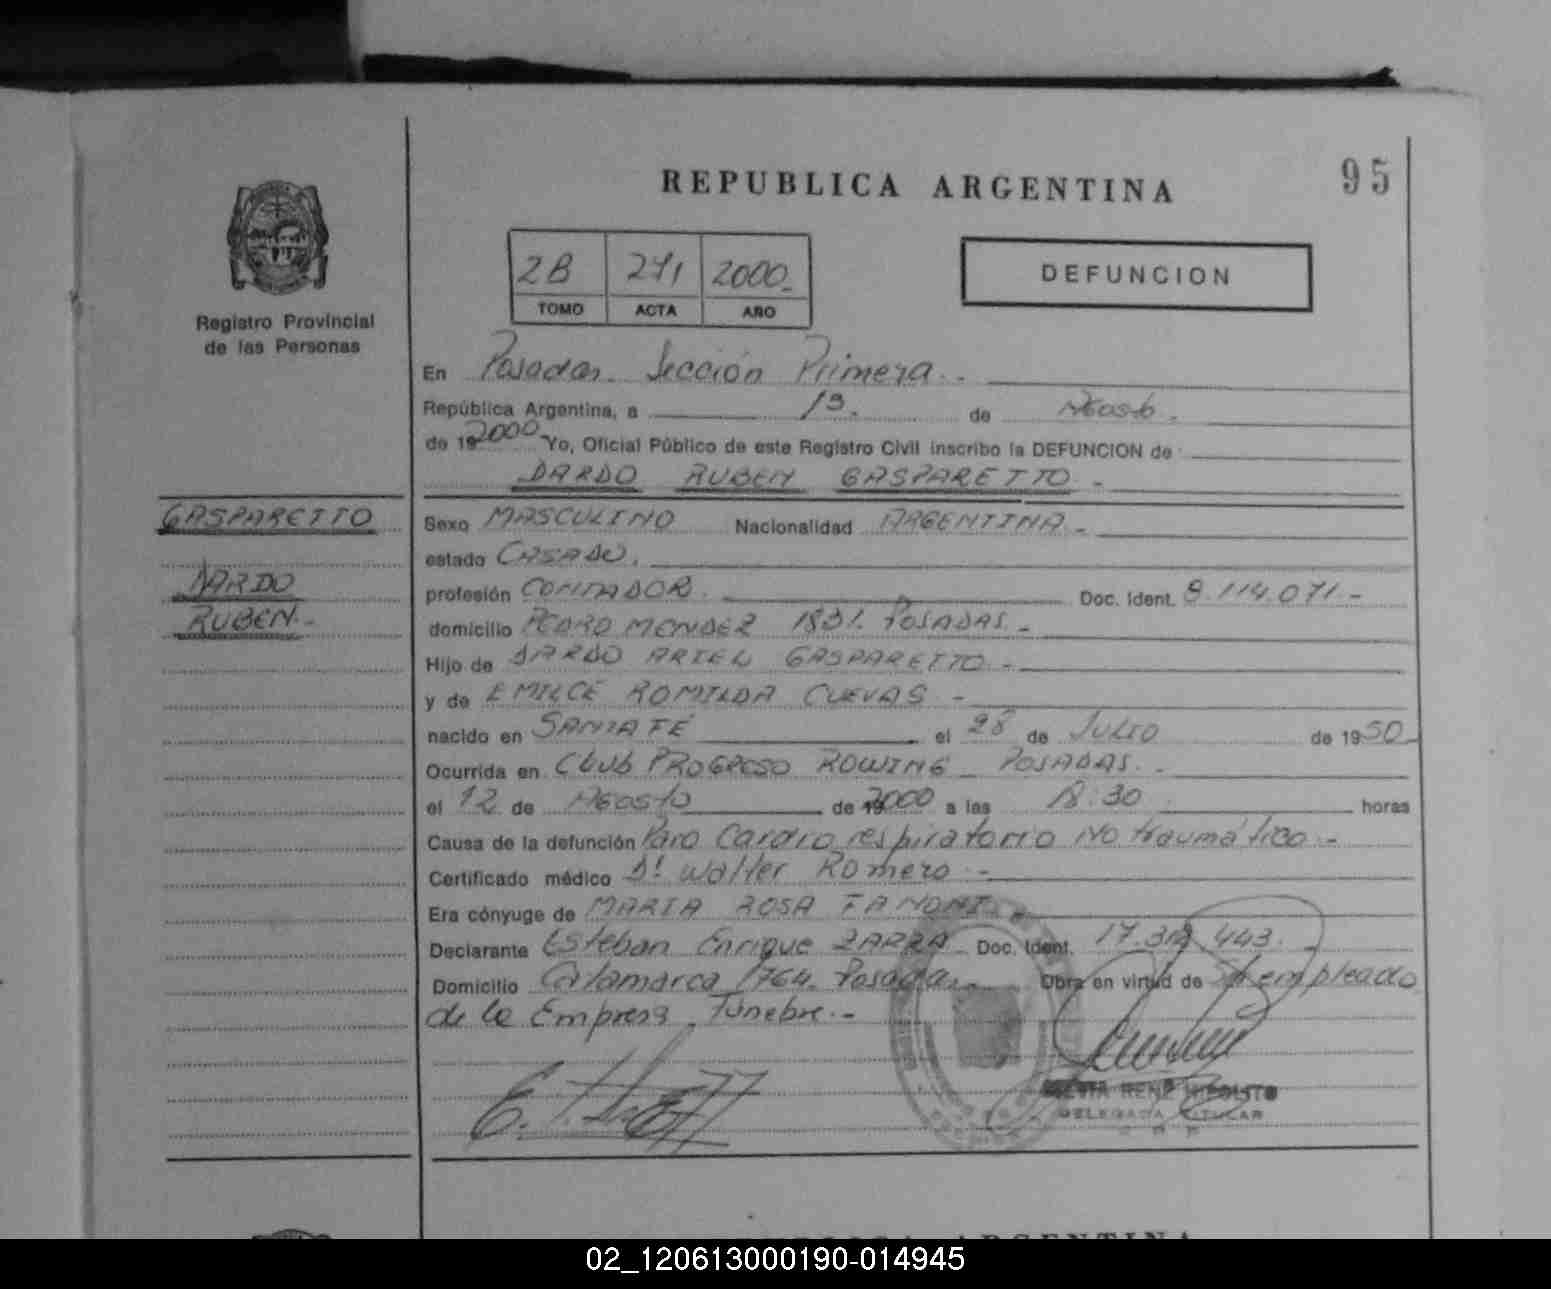 95
REPUBLICA ARGENTINA
2B 271 2000.
TOMO ACTA AÑO
DEFUNCION
Registro Provincial
de las Personas
En Posadas. Sección Primera.-
República Argentina, a 13. de Agosto.
de 192000 Yo, Oficial Público de este Registro Civil inscribo la DEFUNCION de:
DARDO RUBEN GASPARETTO.-
GASPARETTO
DARDO
RUBEN.-
Sexo MASCULINO Nacionalidad ARGENTINA.-
estado CASADO.
profesión CONTADOR. Doc. Ident. 8.114.071.-
domicilio PEDRO MENDEZ 1831. POSADAS.-
Hijo de DARDO ARIEL GASPARETTO.-
y de EMILCE ROMILDA CUEVAS.-
nacido en SANTA FÉ el 28 de JULIO de 1950
Ocurrida en CLUB PROGRESO ROWING POSADAS.-
el 12 de Agosto de 192000 a las 18:30 horas
Causa de la defunción Paro Cardio respiratorio No traumático.-
Certificado médico Dr. Walter Romero.-
Era cónyuge de MARIA ROSA ZANONI.-
Declarante Esteban Enrique ZARZA Doc. Ident. 17.312.443.-
Domicilio Catamarca 1764. Posadas.- Obra en virtud de Ser empleado
de la Empresa Fúnebre.-
SILVIA RENE HIPOLITO
DELEGADA TITULAR
REPUBLICA ARGENTINA
02_120613000190-014945